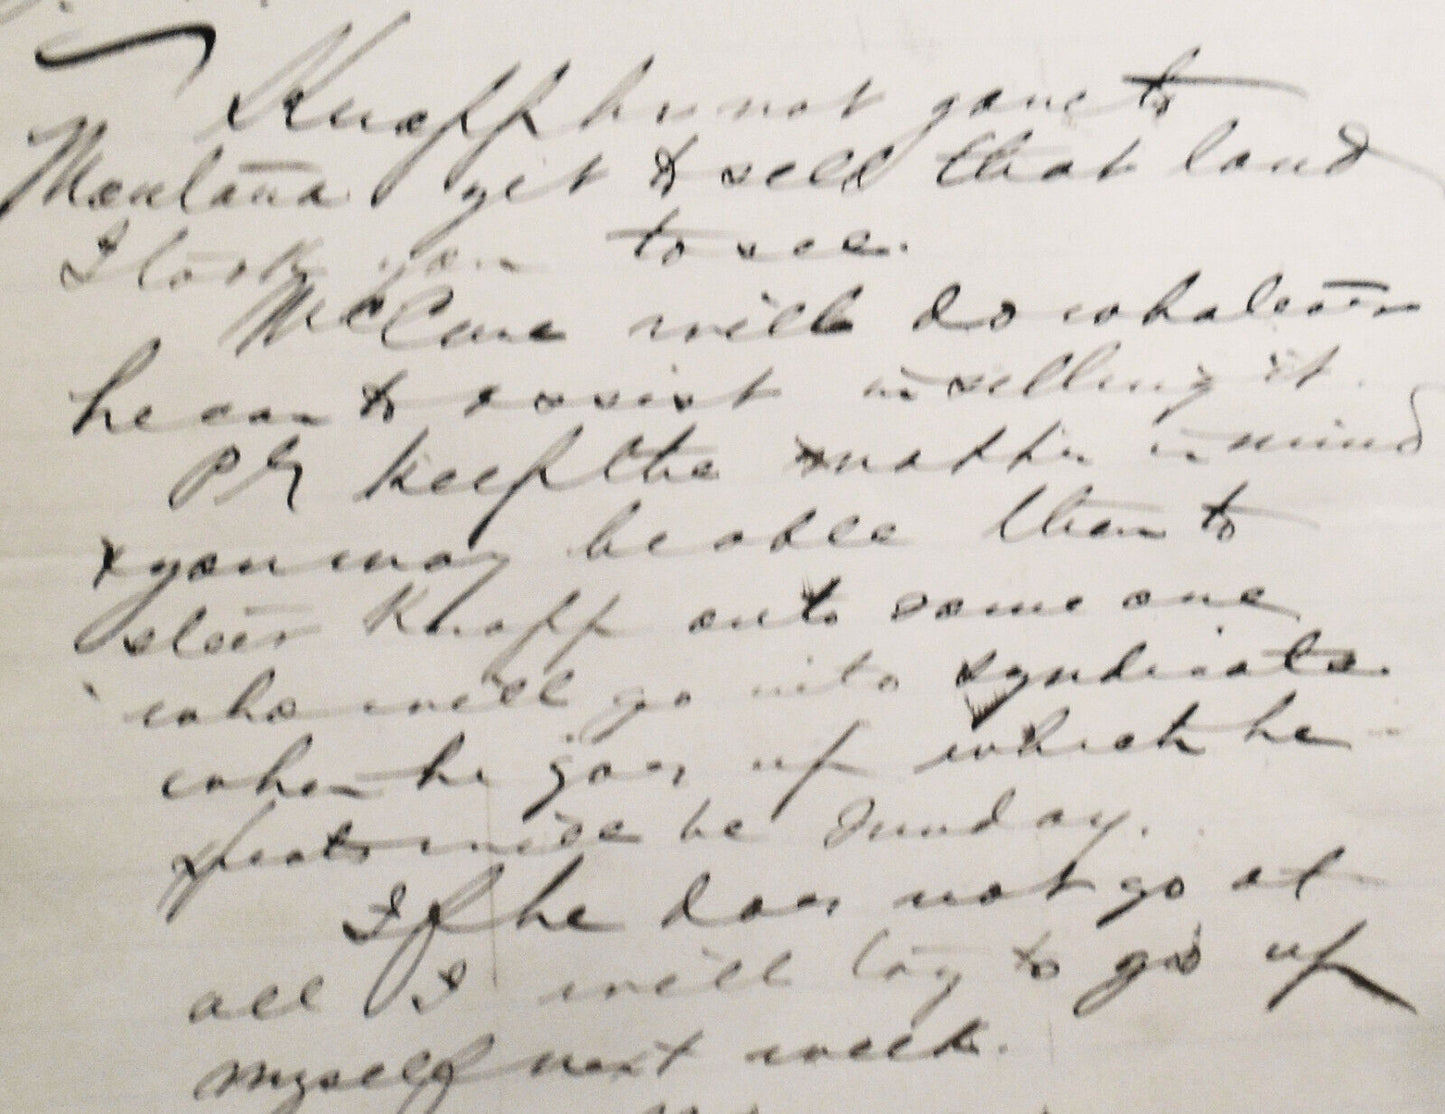 Knapp has not gone to
Montana yet to sell that land
I took you to see.
McCune will do whatever
he can to assist in selling it.
keep the matter in mind
& you may be able then to
steer Knapp onto some one
who will go into syndicate
when he goes up which he
will be Sunday.
If he does not go at
all I will try to go up
myself next week.